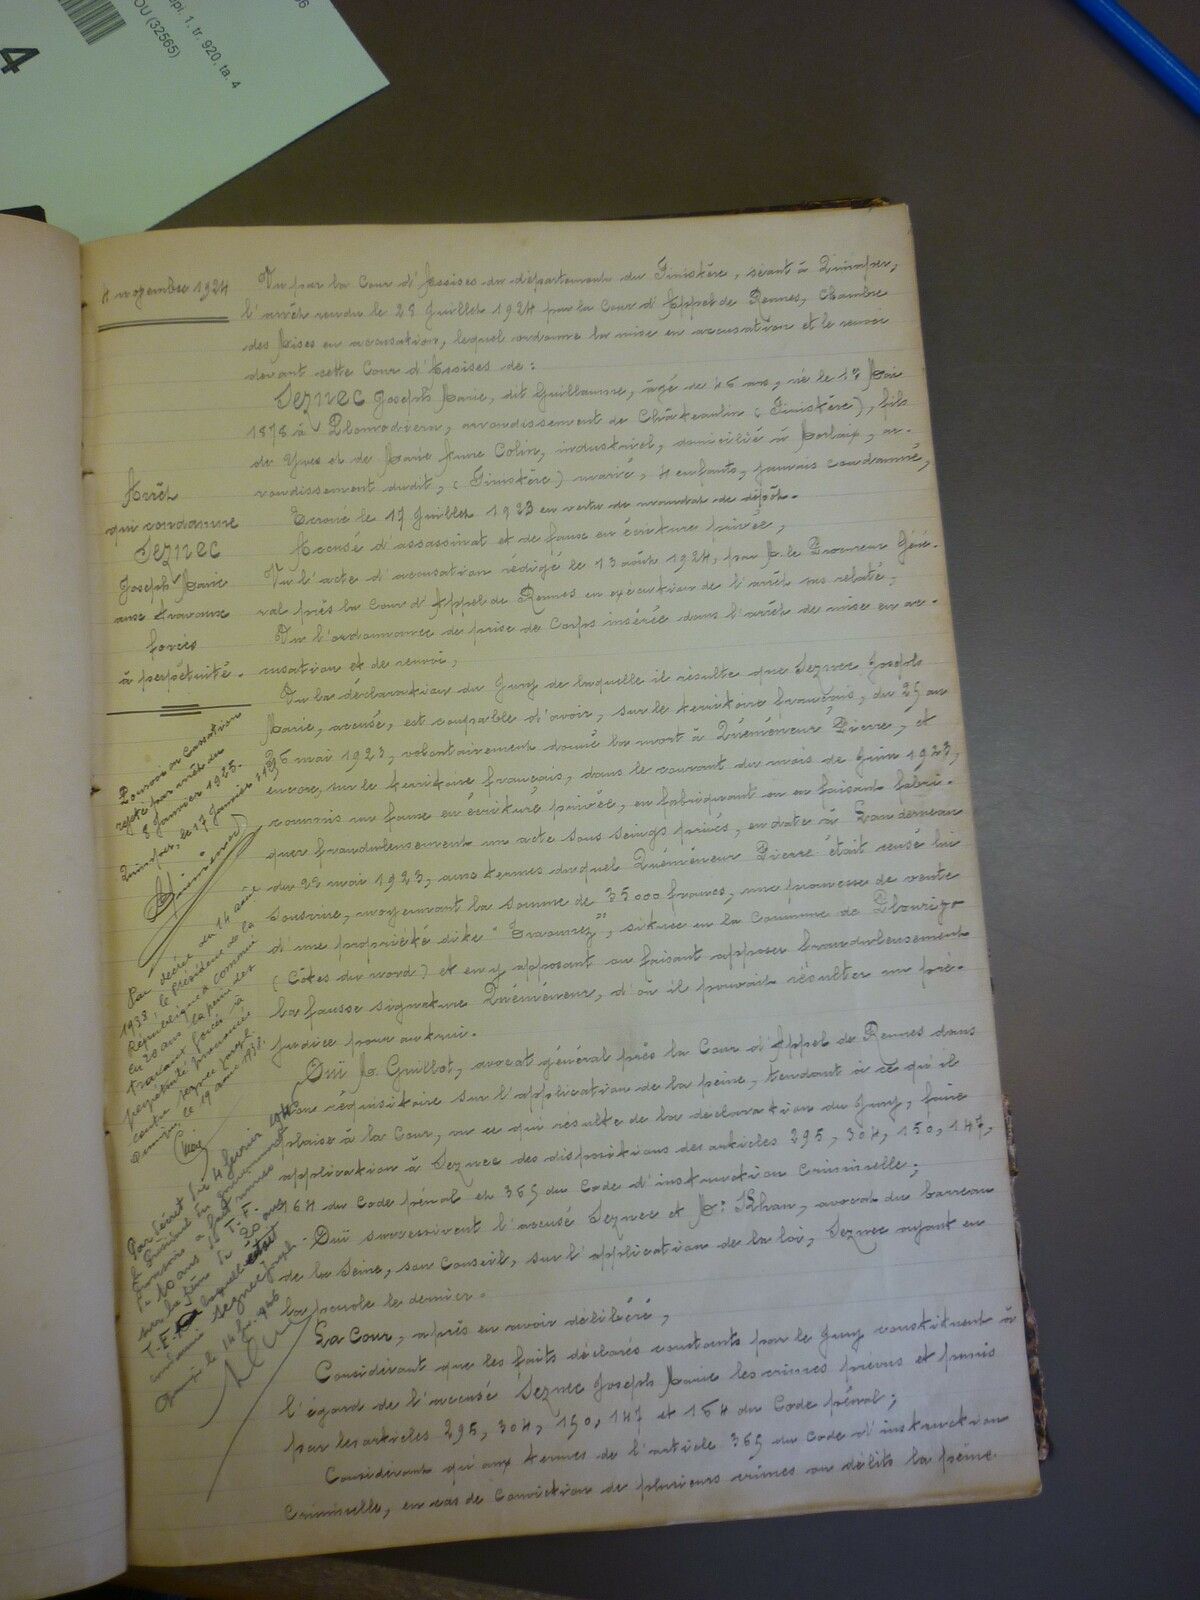 4
ipi. 1, tr. 920, ta. 4
OU (32565)
4 novembre 1924
Vu par la Cour d'Assises du département du Finistère, séant à Quimper,
l'arrêt rendu le 28 Juillet 1924 par la Cour d'Appel de Rennes, Chambre
des Mises en accusation, lequel ordonne la mise en accusation et le renvoi
devant cette Cour d'Assises de :
Seznec Joseph Marie, dit Guillaume, âgé de 46 ans, né le 1er Mai
1878 à Plomodiern, arrondissement de Châteaulin (Finistère), fils
de Yves et de Marie Anne Colin, industriel, domicilié à Morlaix, ar-
rondissement dudit, (Finistère) marié, 4 enfants, jamais condamné,
Ecroué le 17 Juillet 1923 en vertu de mandat de dépôt.
Accusé d'assassinat et de faux en écriture privée,
Vu l'acte d'accusation rédigé le 13 août 1924, par M. le Procureur Géné-
ral près la Cour d'Appel de Rennes en exécution de l'arrêt sus relaté,
Vu l'ordonnance de prise de Corps insérée dans l'arrêt de mise en ac-
cusation et de renvoi,
Vu la déclaration du Jury de laquelle il résulte que Seznec Joseph
Marie, accusé, est coupable d'avoir, sur le territoire français, du 25 au
26 mai 1923, volontairement donné la mort à Quéméneur Pierre, et
encore, sur le territoire français, dans le courant du mois de Juin 1923,
commis un faux en écriture privée, en fabriquant ou en faisant fabri-
quer frauduleusement un acte sous seings privés, en date à Landerneau
du 22 mai 1923, aux termes duquel Quéméneur Pierre était censé lui
souscrire, moyennant la somme de 35000 francs, une promesse de vente
d'une propriété dite "Traounez", située en la Commune de Plourivo
(Côtes du nord) et en y apposant ou faisant apposer frauduleusement
la fausse signature Quéméneur, d'où il pouvait résulter un pré-
judice pour autrui.
Ouï M. Guillot, avocat général près la Cour d'Appel de Rennes dans
son réquisitoire sur l'application de la peine, tendant à ce qu'il
plaise à la Cour, vu ce qui résulte de la déclaration du Jury, faire
application à Seznec des dispositions des articles 295, 304, 150, 147,
164 du Code pénal et 365 du Code d'instruction Criminelle ;
Ouï successivement l'accusé Seznec et Me Kahn, avocat du barreau
de la Seine, son Conseil, sur l'application de la loi, Seznec ayant eu
la parole le dernier.
La Cour, après en avoir délibéré,
Considérant que les faits déclarés constants par le Jury constituent à
l'égard de l'accusé Seznec Joseph Marie les crimes prévus et punis
par les articles 295, 304, 150, 147 et 164 du Code pénal ;
Considérant qu'aux termes de l'article 365 du Code d'instruction
Criminelle, en cas de Conviction de plusieurs crimes ou délits la peine
Arrêt
qui condamne
Seznec
Joseph Marie
aux travaux
forcés
à perpétuité.
Pourvoi en Cassation
rejeté par arrêt du
8 Janvier 1925.
Quimper, le 17 Janvier 1925
Par décret du 14 avril
1938 le Président de la
République a commué
en 20 ans la peine des
travaux forcés à
perpétuité prononcée
contre Seznec Joseph.
Quimper, le 19 avril 1938.
Par décret du 4 février 1946
le Président du Gouvernement
Provisoire a fait remise
de 10 ans de T.F.
sur la peine de 20 ans
T.F. à laquelle était
condamné Seznec Joseph.
Quimper le 14 fév. 1946